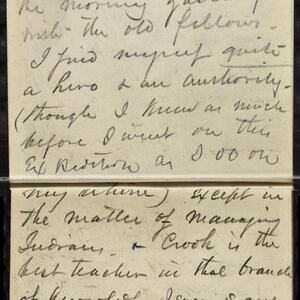 the morning
with the old fellows.
I find myself quite
a hero & an authority.
(though I knew as much
before I went on this
Expedition as I do on
my return) except in
the matter of managing
Indians. & Crook is the
best teacher in that branch
of